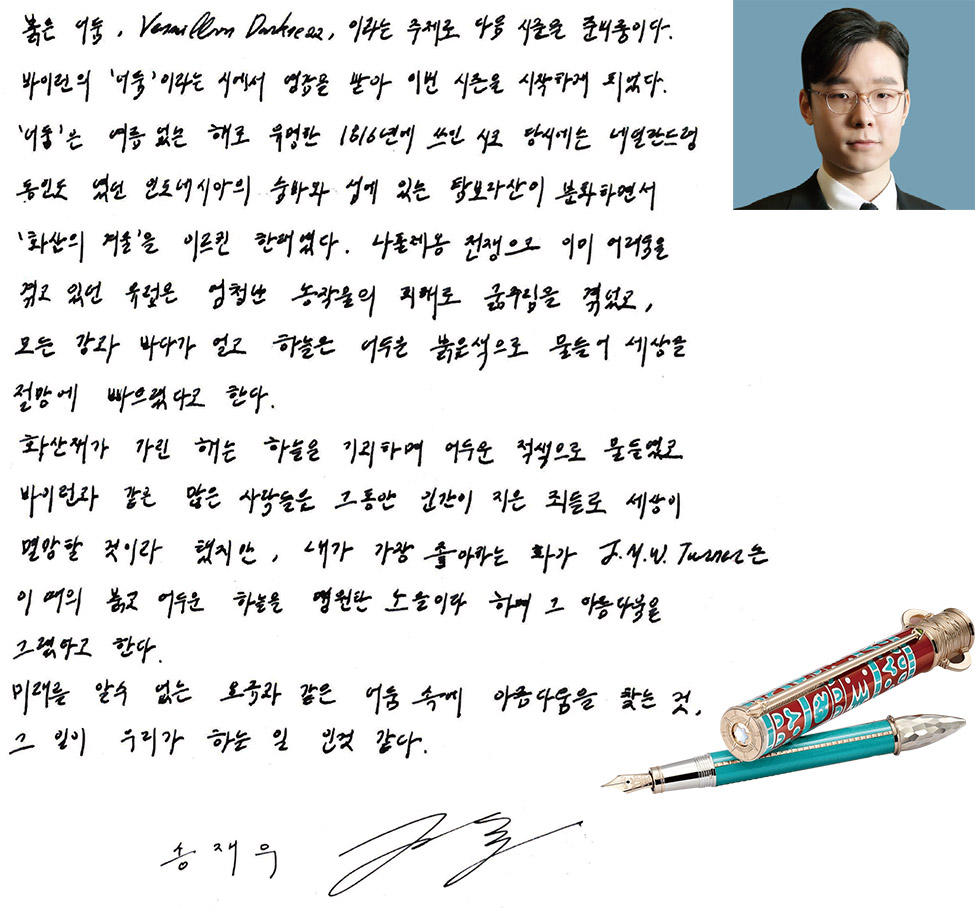 붉은 어둠, Vermillion Darkness, 이라는 주제로 다음 시즌을 준비중이다.
바이런의 '어둠'이라는 시에서 영감을 받아 이번 시즌을 시작하게 되었다.
'어둠'은 여름 없는 해로 유명한 1816년에 쓰인 시로 당시에는 네덜란드령
동인도 였던 인도네시아의 숨바와 섬에 있는 탐보라산이 분화하면서
'화산의 겨울'을 이르킨 한해였다. 나폴레옹 전쟁으로 이미 어려움을
겪고 있던 유럽은 엄청난 농작물의 피해로 굶주림을 겪었고,
모든 강과 바다가 얼고 하늘은 어두운 붉은색으로 물들어 세상을
절망에 빠트렸다고 한다.
화산재가 가린 해는 하늘을 기리하며 어두운 적색으로 물들였고
바이런과 같은 많은 사람들은 그동안 인간이 지은 죄들로 세상이
멸망할 것이라 했지만, 내가 가장 좋아하는 화가 J.M.W. Turner는
이 때의 붉고 어두운 하늘을 영원한 노을이다 하며 그 아름다움을
그렸다고 한다.
미래를 알수 없는 요즘과 같은 어둠 속에 아름다움을 찾는 것,
그 일이 우리가 하는 일 인것 같다.
송재우